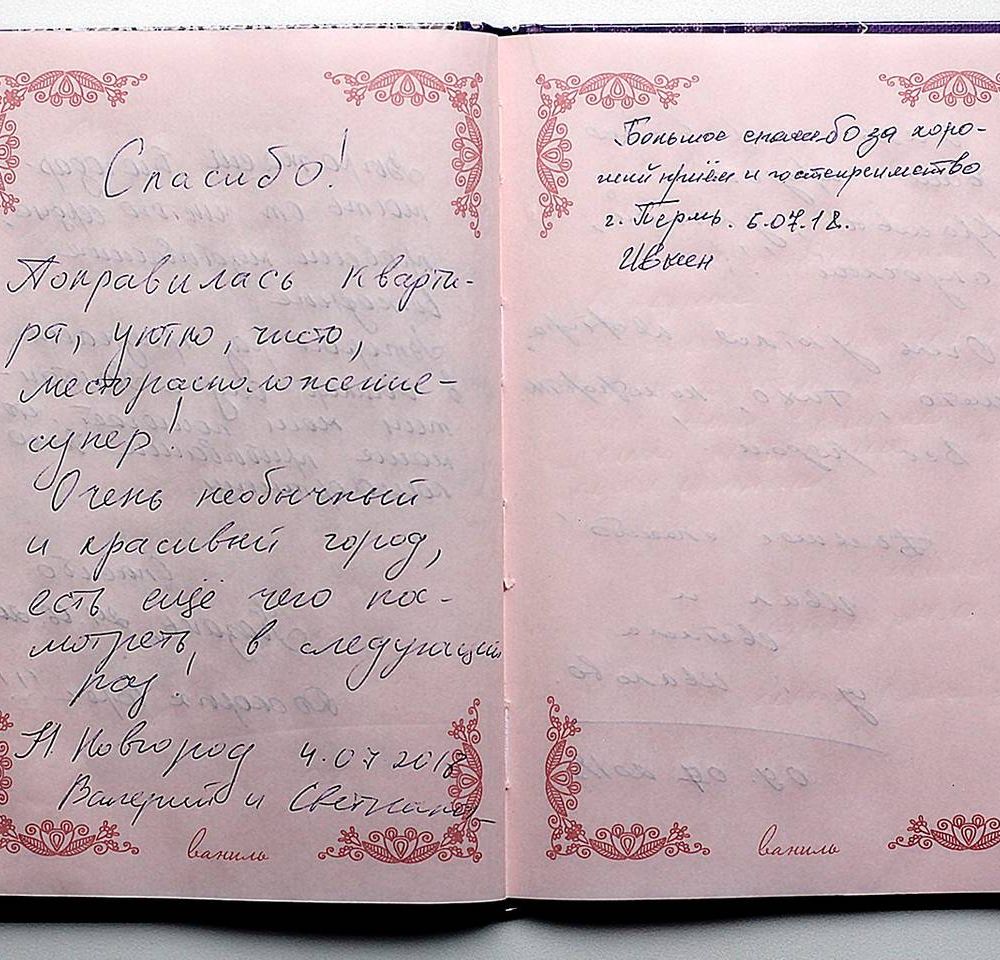 Спасибо!
Понравилась кварти-
ра, уютно, чисто,
месторасположение-
супер!
Очень необычный
и красивый город,
есть ещё чего по-
мотреть, в следующий
раз!
Н Новгород 4.07 2018
Валерий и Светлана
ваниль
Большое спасибо за хоро-
ший приём и гостеприимство
г. Пермь. 6.07.18.
ваниль